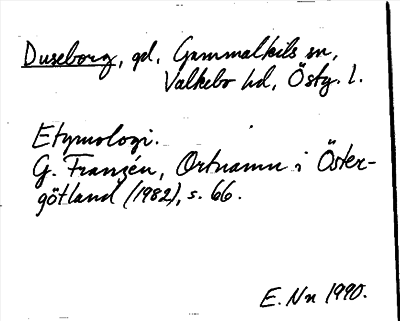 Duseborg, gd, Gammalkils sn,
Valkebo hd, Östg. l.
Etymologi.
G. Franzén, Ortnamn i Öster-
götland (1982), s. 66.
E. Nn 1990.